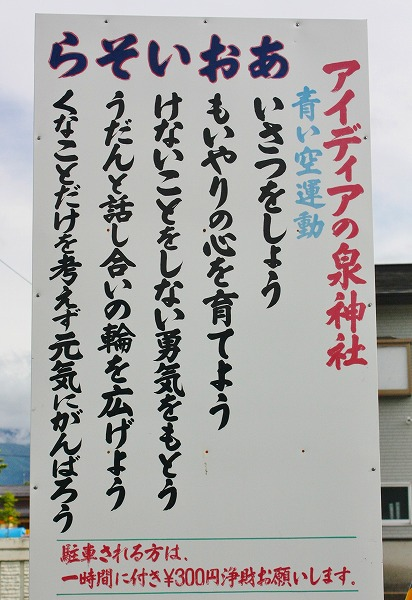 アイディアの泉神社
青い空運動
あいさつをしよう
おもいやりの心を育てよう
いけないことをしない勇気をもとう
そうだんと話し合いの輪を広げよう
らくなことだけを考えず元気にがんばろう
駐車される方は、
一時間に付き¥300円浄財お願いします。